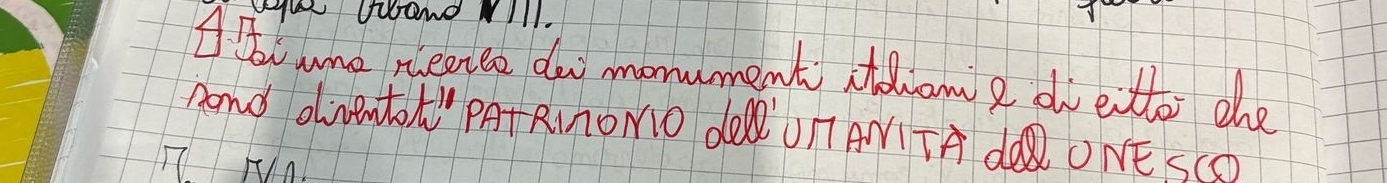 Papa Urbano VIII.
1 Fai una ricerca dei monumenti italiani e di città che
sono diventati "PATRIMONIO dell'UMANITÀ dell UNESCO